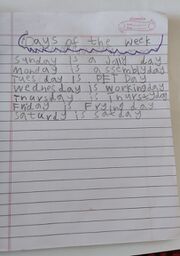 Days of the week
Sunday is a Jolly day
Monday is assemblyday
Tues day is PET Day
Wednesday is workingday
Thursday is Thurstyday
Friday is Frying day
Saturdy is Satday